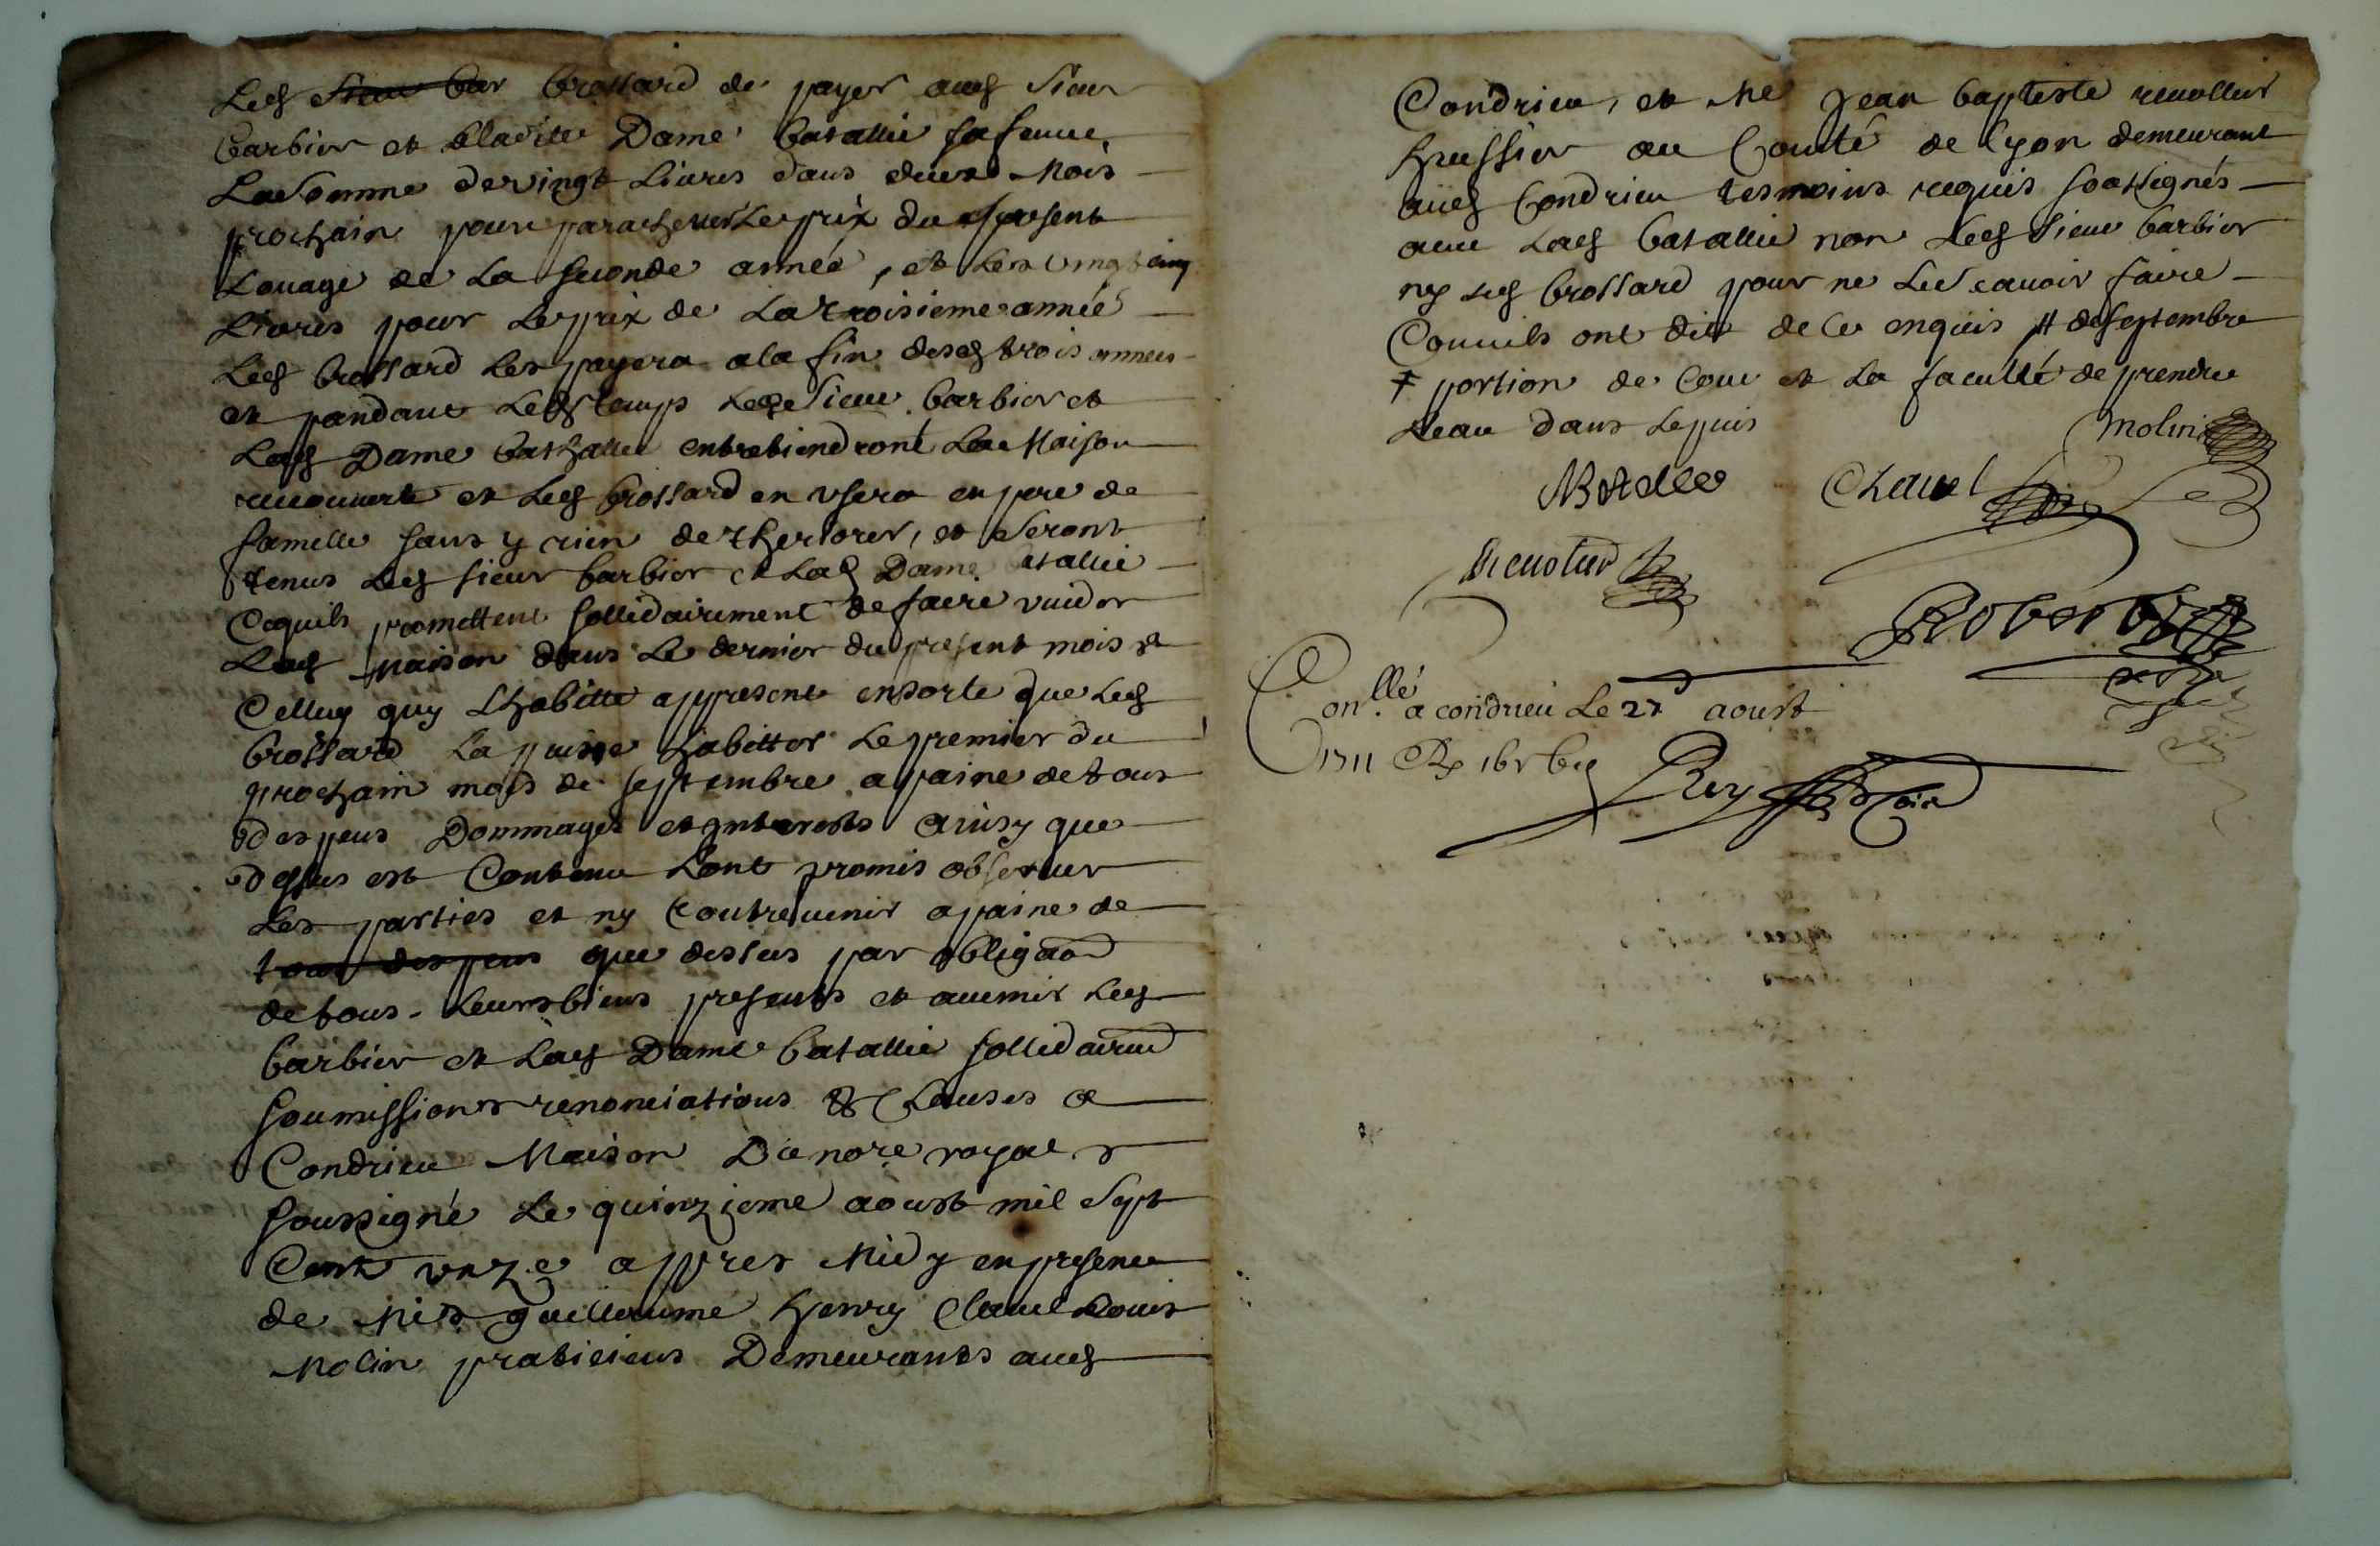 Led Sieur bar brossard de payer aud Sieur
barbier et a ladite Dame batallie sa feme
La Somme de vingt Livres dans deux Mois
prochain pour parachever Le prix du present
Louage de La seconde année, et Les vingt cinq
Livres pour Le prix de La troisieme année
Led brossard Les payera a la fin desd trois années
et pandant Led temps Led Sieur barbier et
Lad Dame bathallie entretiendront La Maison
recouverte et Led brossard en usera en pere de
famille sans y rien detheriorer, et Seront
tenus Led sieur barbier et Lad Dame batallie
Ce quils promettent sollidairement de faire vuider
Lad maison dans Le dernier du present mois et
Celluy quy Lhabitte appresent ensorte que Led
brossard La puisse habitter Le premier du
prochain mois de septembre a paine de tous
despens Dommages et jnterests Ainsy que
dessus est Contenu Lont promis observer
Les parties et ny Contrevenir a paine de
tous despens que dessus par obligaon
de tous Leurs biens presents et avenir Led
barbier et Lad Dame batallie sollidairemt
soumissions renonciations & Clauses &
Condrieu Maison Du nore royal
soussigné Le quinzieme aoust mil Sept
Cents unze appres Midy en presence
de Mes guillaume henry Clavel Louis
Molin praticiens Demeurants aud
Condrieu, et Me Jean baptiste revollier
huissier au Comté de Lyon demeurant
aud Condrieu tesmoins requis soussignés
avec Lad batallie non Led Sieur barbier
ny Led brossard pour ne Le Scavoir faire
Comm'ils ont dit de Ce enquis # de septembre
+ portion de Cour et La faculté de prendre
Leau dans Le puis
Molin
Clavel
Revolier
Robert
Conllé a condrieu Le 27 aoust
1711
Rey